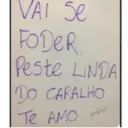 VAI SE
FODER
PESTE LINDA
DO CARALHO
TE AMO